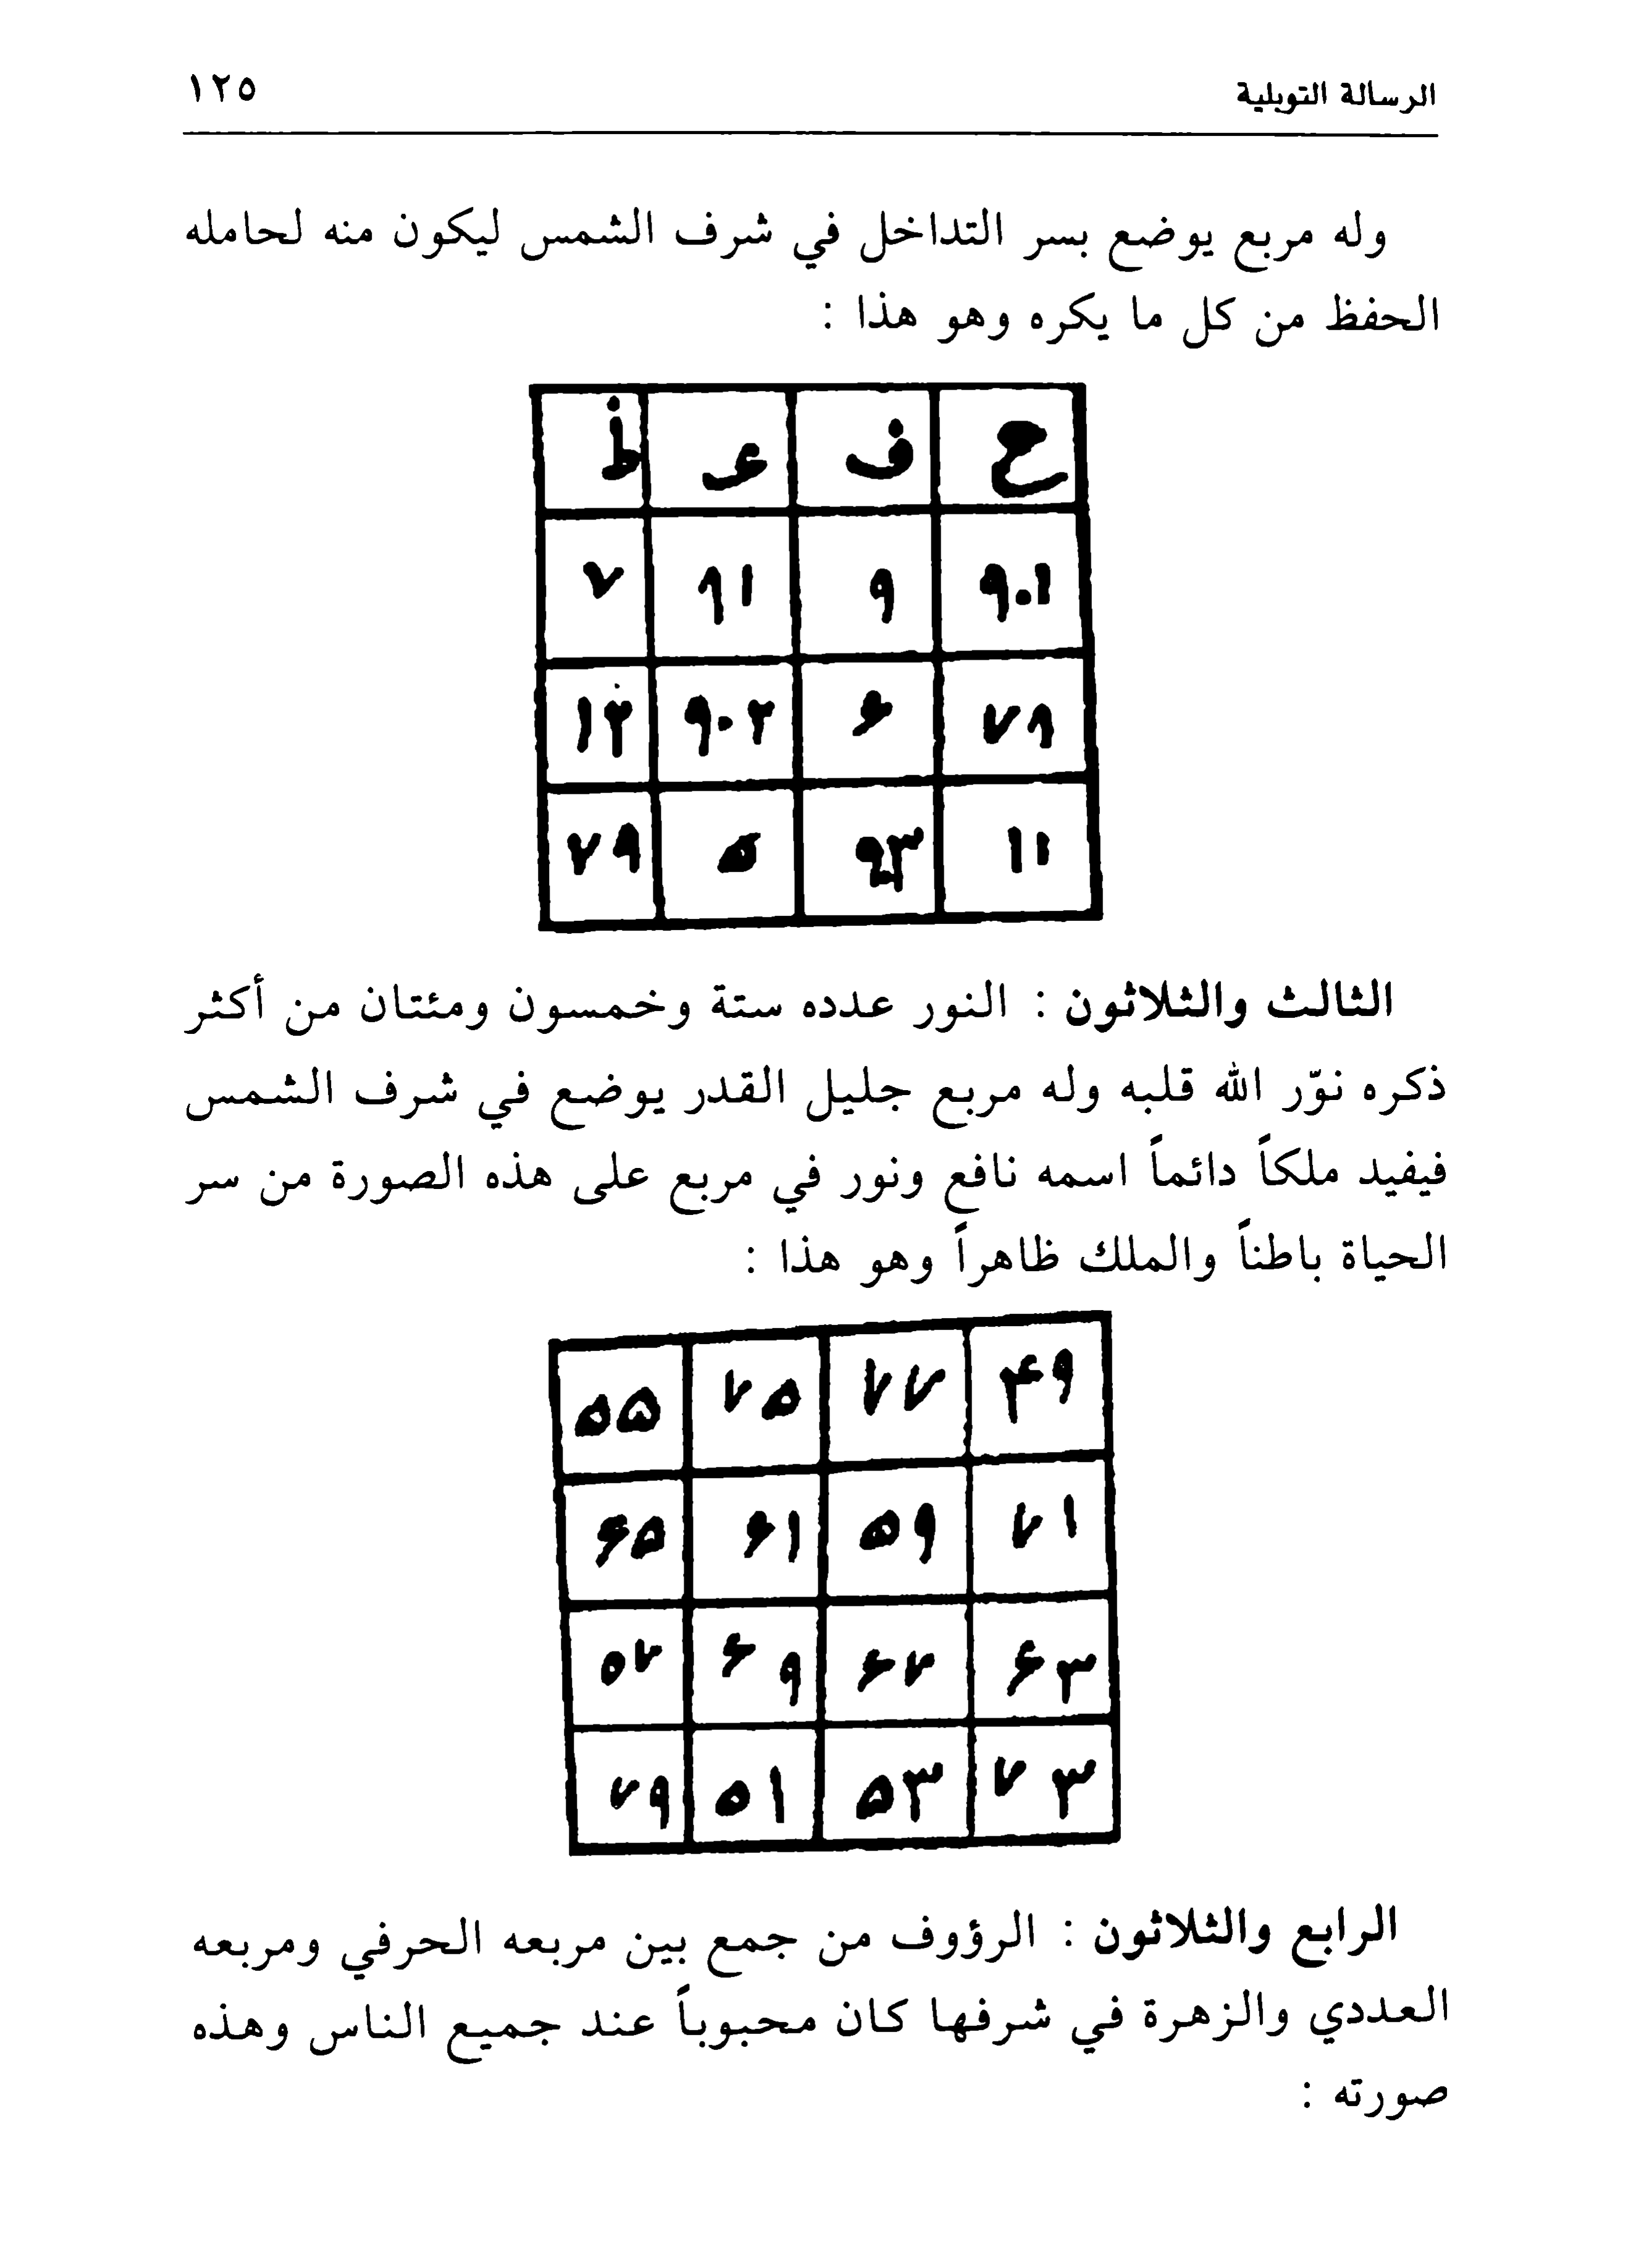 الرسالة التوبلية ١٢٥
وله مربع يوضع بسر التداخل في شرف الشمس ليكون منه لحامله
الحفظ من كل ما يكره وهو هذا :
ح ف ي ظ
۹۰۱ ۹ ۸۱ ۷
۷۸ ۶ ۹۰۲ ۱۲
۱۱ ۹۰۳ ۵ ۷۹
الثالث والثلاثون : النور عدده ستة وخمسون ومئتان من أكثر
ذكره نوّر الله قلبه وله مربع جليل القدر يوضع في شرف الشمس
فيفيد ملكاً دائماً اسمه نافع ونور في مربع على هذه الصورة من سر
الحياة باطناً والملك ظاهراً وهو هذا :
۴۹ ۷۷ ۷۵ ۵۵
۷۱ ۵۹ ۶۱ ۶۵
۶۳ ۶۷ ۶۹ ۵۷
۷۳ ۵۳ ۵۱ ۷۹
الرابع والثلاثون : الرؤوف من جمع بين مربعه الحرفي ومربعه
العددي والزهرة في شرفها كان محبوباً عند جميع الناس وهذه
صورته :